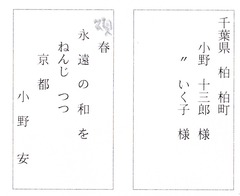 千葉県 柏 柏町
小野 十三郎 様
〃 いく子 様
春
永遠の和を
ねんじ つつ
京都
小野 安